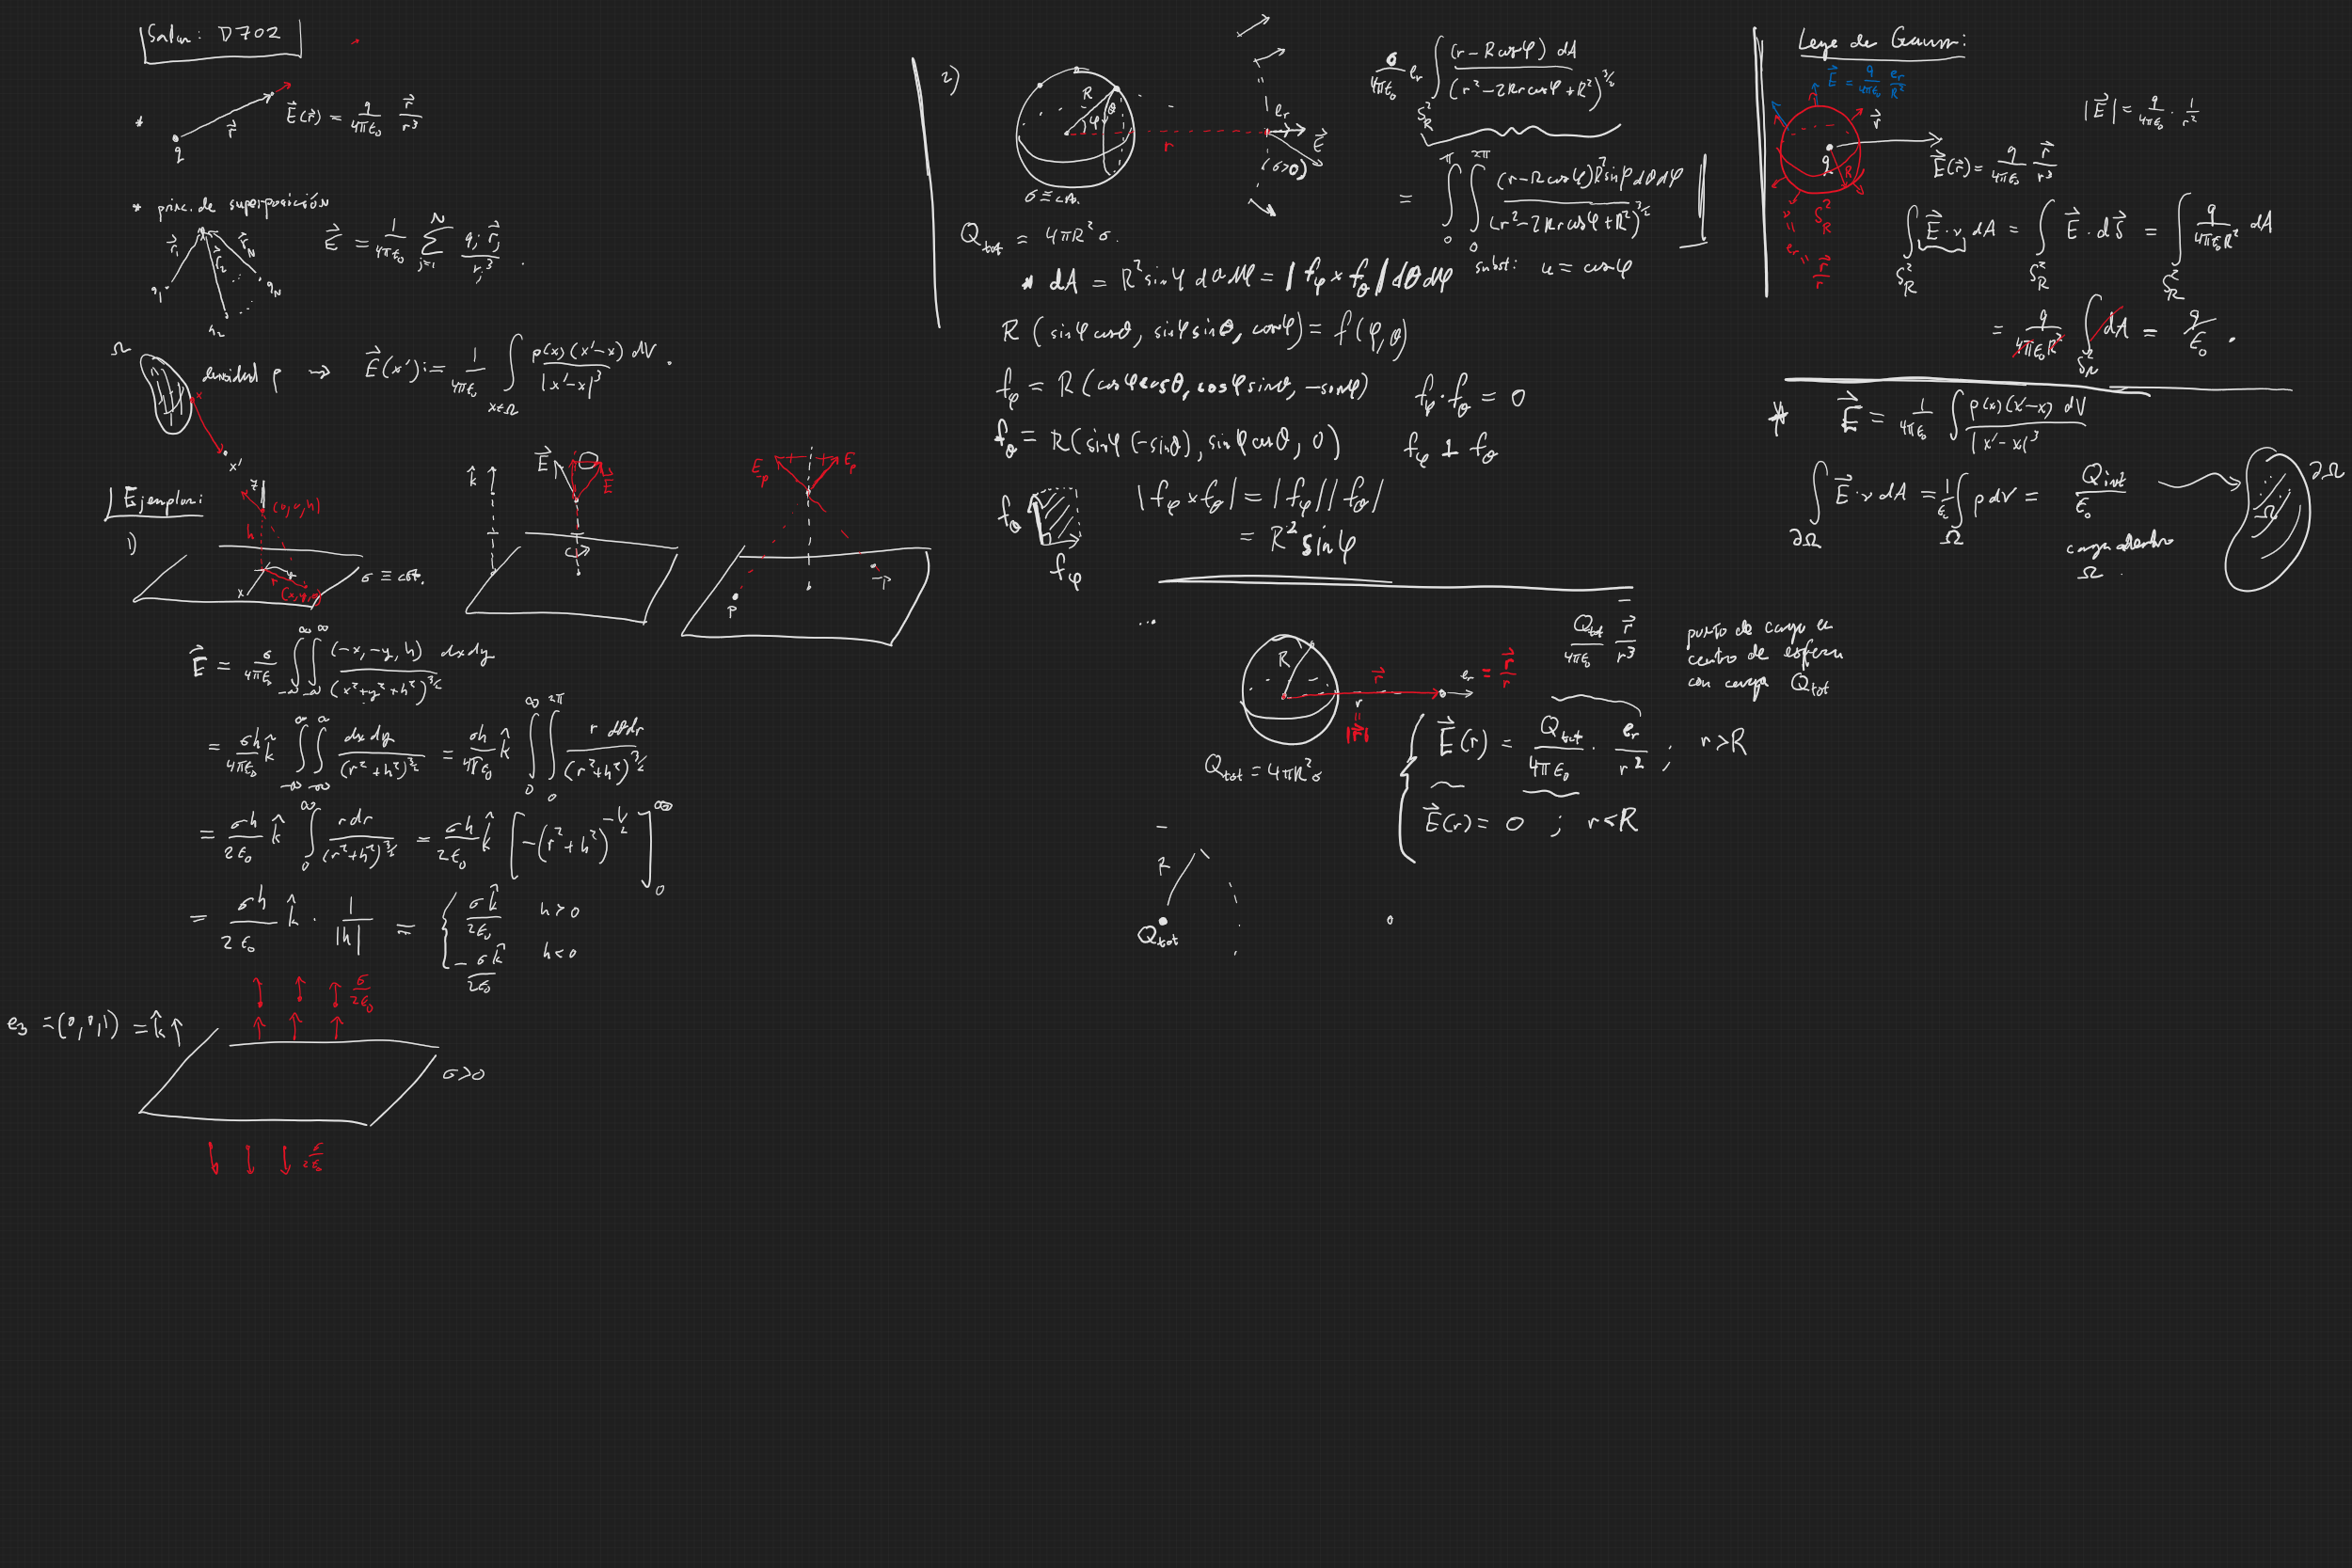 Salon: D702
* q r⃗ E⃗(r⃗) = q/(4πε₀) r⃗/r³
* princ. de superposición
r⃗₁ r⃗₂ r⃗_N
q₁ q₂ q_N
E⃗ = 1/(4πε₀) Σ_{j=1}^{N} q_j r⃗_j / r_j³ .
Ω densidad ρ → E⃗(x') := 1/(4πε₀) ∫_{x∈Ω} ρ(x)(x'-x) dV / |x'-x|³ .
x
x'
Ejemplos:
1)
z (0,0,h)
h
x r (x,y,0)
σ ≡ cst.
k̂ E⃗ E⃗
E_{-p} E_p
p -p
E⃗ = σ/(4πε₀) ∫_{-∞}^{∞} ∫_{-∞}^{∞} (-x,-y,h) dxdy / (x²+y²+h²)^{3/2}
= σh/(4πε₀) k̂ ∫_{-∞}^{∞} ∫_{-∞}^{∞} dxdy / (r²+h²)^{3/2} = σh/(4πε₀) k̂ ∫_0^∞ ∫_0^{2π} r dθdr / (r²+h²)^{3/2}
= σh/(2ε₀) k̂ ∫_0^∞ rdr / (r²+h²)^{3/2} = σh/(2ε₀) k̂ [-(r²+h²)^{-1/2}]_0^∞
= σh/(2ε₀) k̂ · 1/|h| = { σk̂/(2ε₀) h>0
-σk̂/(2ε₀) h<0
σ/(2ε₀)
e₃ = (0,0,1) = k̂ ↑
σ>0
σ/(2ε₀)
2)
R φ θ
r
e_r
E⃗
(σ>0)
σ ≡ cst.
Q_tot = 4πR²σ.
σ/(4πε₀) e_r ∫_{S²_R} (r-Rcosφ) dA / (r²-2Rrcosφ+R²)^{3/2}
= ∫_0^π ∫_0^{2π} (r-Rcosφ)R²sinφ dθdφ / (r²-2Rrcosφ+R²)^{3/2}
subst: u = cosφ
* dA = R²sinφ dθdφ = |f_φ × f_θ| dθdφ
R(sinφcosθ, sinφsinθ, cosφ) = f(φ,θ)
f_φ = R(cosφcosθ, cosφsinθ, -sinφ) f_φ·f_θ = 0
f_θ = R(sinφ(-sinθ), sinφcosθ, 0) f_φ ⊥ f_θ
f_θ
f_φ
|f_φ × f_θ| = |f_φ||f_θ|
= R² sinφ
...
R r⃗ e_r = r⃗/r
r
=
|r⃗|
Q_tot = 4πR²σ
Q_tot/(4πε₀) r⃗/r³
punto de carga en
centro de esfera
con carga Q_tot
{ E⃗(r) = Q_tot/(4πε₀) · e_r/r² ; r>R
E⃗(r) = 0 ; r<R
R
Q_tot
Leye de Gauss:
E⃗ = q/(4πε₀) e_r/R²
|E⃗| = q/(4πε₀) · 1/r²
r⃗
q R
E⃗(r⃗) = q/(4πε₀) r⃗/r³
S²_R
ν = e_r = r⃗/r
∫_{S²_R} E⃗·ν dA = ∫_{S²_R} E⃗·dS⃗ = ∫_{S²_R} q/(4πε₀R²) dA
= q/(4πε₀R²) ∫_{S²_R} dA = q/ε₀ .
* E⃗ = 1/(4πε₀) ∫ ρ(x)(x'-x) dV / |x'-x|³
∫_{∂Ω} E⃗·ν dA = 1/ε₀ ∫_Ω ρ dV = Q_int/ε₀
carga adentro
Ω .
Ω
∂Ω